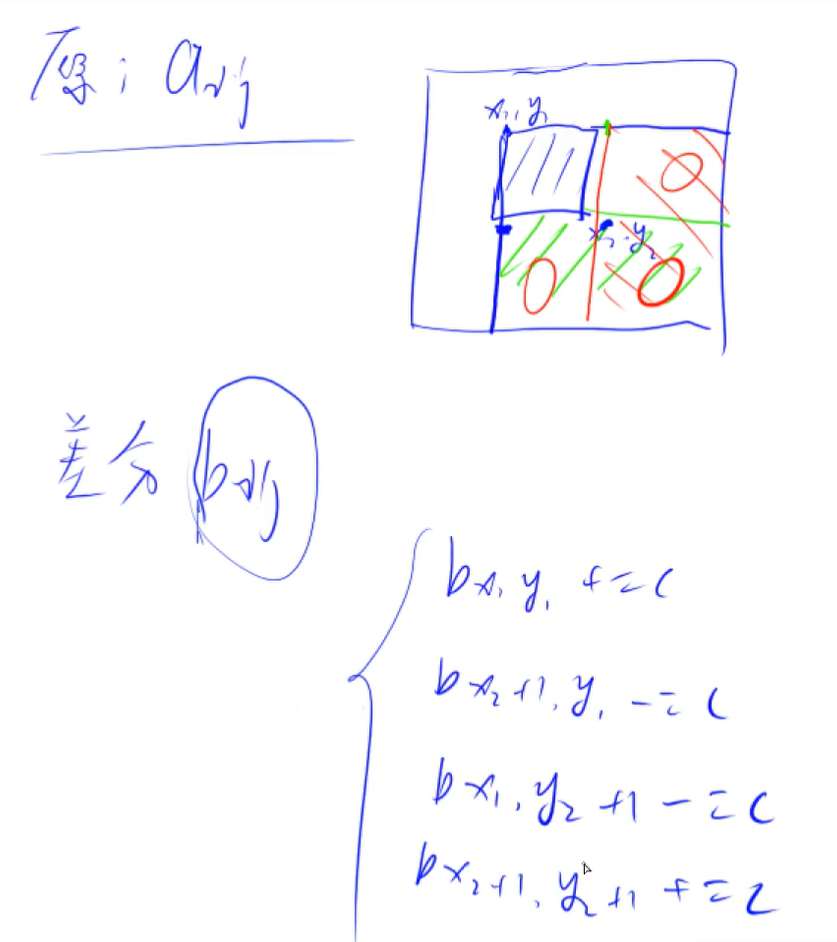 原: aij
x₁,y₁
x₂,y₂
差分 bij
bx₁y₁ += c
bx₂+1,y₁ -= c
bx₁,y₂+1 -= c
bx₂+1,y₂+1 += c